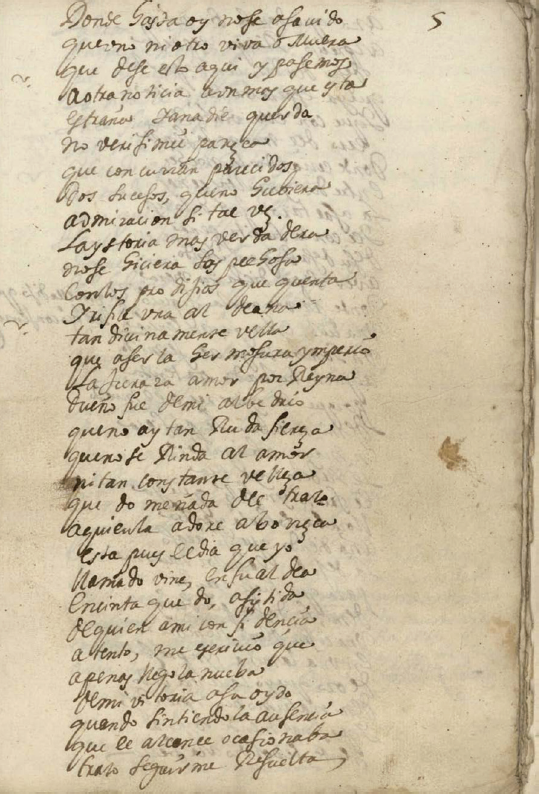 5
Donde hasta oy no se a savido
querno ni otro viva o Muera
que dese esto aqui y pasemos
a otra noticia aun mas que esta
estraña Xanadie querda
no verisimil parezca
que concurran parecidos
dos sucesos, que no hubiera
admiracion si tal vez
la ystoria mas verdadera
no se hiciera sospechosa
con los prodisios que quenta
Nisila una al deana
tan divinamente vella
que a ser la hermosura ymperio
la jurara amor por Reyna
dueño fue de mi albedrio
que no ay tan Ruda fiereza
que no se Rinda al amor
ni tan constante velleza
que domeñada del trato
a quien la adore aborrezca
esta pues el dia que yo
llamado vine, en su aldea
en cinta quedo, asistida
de quien a mi confidencia
atento, me escrivio que
apenas llego la nueba
de mi vitoria a su oydo
quando sintiendo la ausencia
que el alcance ocasionaba
trato seguirme Resuelta